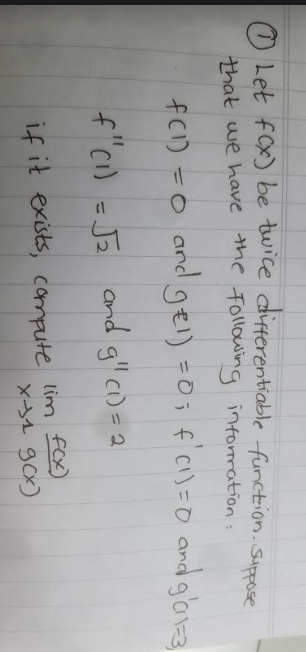 ① Let f(x) be twice differentiable function. Suppose
that we have the following information:
f(1) = 0 and g(1) = 0; f'(1) = 0 and g'(1) = 3,
f''(1) = √2 and g''(1) = 2
if it exists, compute lim x→1 f(x)/g(x)